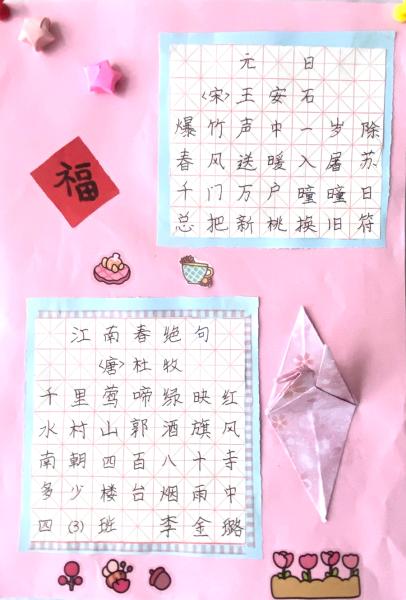 元 日
〈宋〉王安石
爆竹声中一岁除
春风送暖入屠苏
千门万户曈曈日
总把新桃换旧符
福
江南春绝句
〈唐〉杜牧
千里莺啼绿映红
水村山郭酒旗风
南朝四百八十寺
多少楼台烟雨中
四(3)班 李金璐